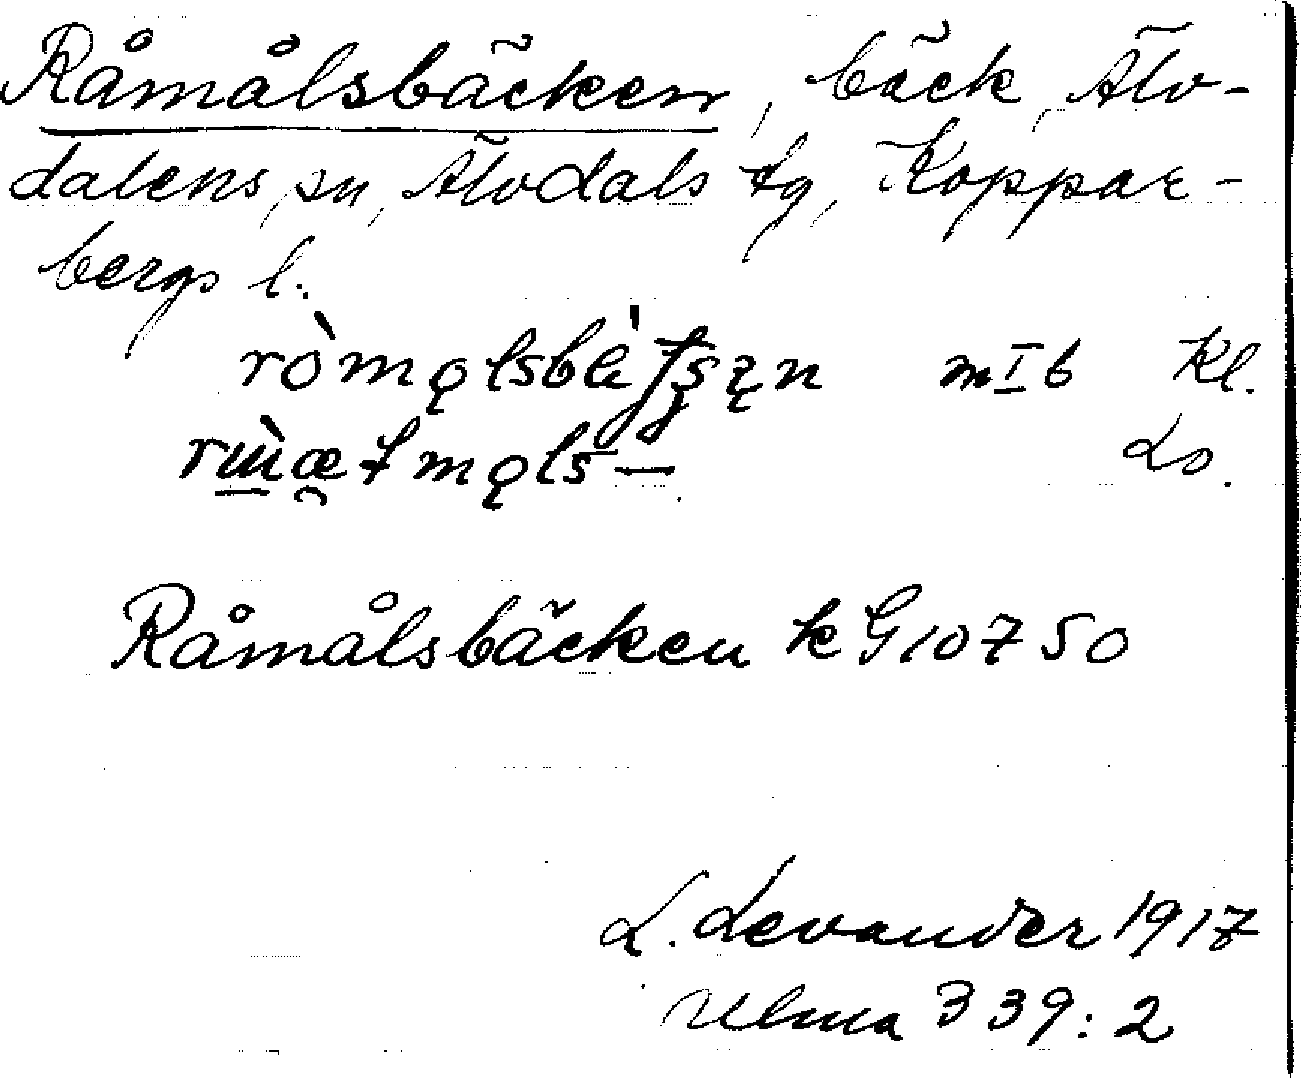 Råmålsbäcken, bäck, Älv-
dalens sn, Älvdals tg, Koppar-
bergs l.
mIb Kl.
Ls.
Råmålsbäcken kG10750
L. Levander 1917
Ulma 339:2